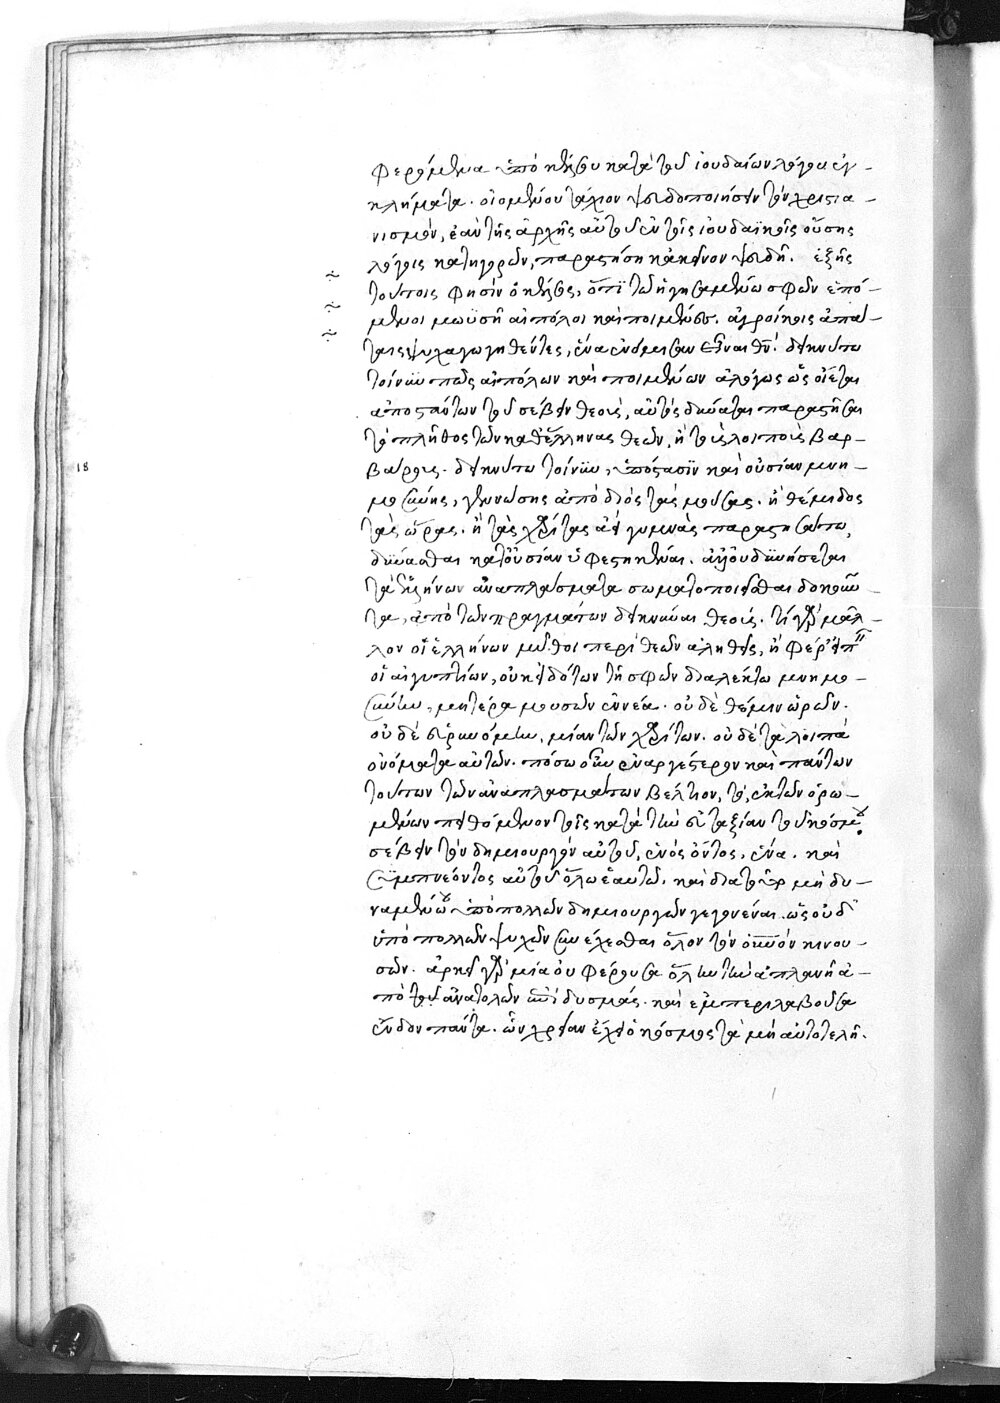 φερόμενα ὑπὸ κέλσου κατὰ τοῦ ἰουδαίων λόγου ἐγ-
κλήματα. οἰομένου τάχιον ψευδοποιήσειν τὸν χριστια-
νισμὸν, ἐὰν τῆς ἀρχῆς αὐτοῦ ἐν τοῖς ἰουδαϊκοῖς οὔσης
λόγοις κατηγορῶν, παραστήση κἀκεῖνον ψευδῆ. ἑξῆς
τούτοις φησὶν ὁ κέλσος, ὅτι τῶ ἡγησαμένω σφῶν ἑπό-
μενοι μωϋσῆ αἰπόλοι καὶ ποιμένες. ἀγροίκοις ἀπά-
ταις ψυχαγωγηθέντες, ἕνα ἐνόμισαν εἶναι θν. δεικνύτω
τοίνυν πῶς αἰπόλων καὶ ποιμένων ἀλόγως ὡς οἴεται
ἀποστάντων τοῦ σέβειν θεοὺς, αὐτὸς δύναται παραστῆσαι
τὸ πλῆθος τῶν καθ' ἕλληνας θεῶν, ἢ τοὺς λοιποὺς βαρ-
βάρους. δεικνύτω τοίνυν, ὑπόστασιν καὶ οὐσίαν μνη-
μοσύνης, γεννώσης ἀπὸ διὸς τὰς μούσας. ἢ θέμιδος
τὰς ὥρας. ἢ τὰς χάριτας ἀεὶ γυμνὰς παραστησάτω,
δύνασθαι κατ' οὐσίαν ὑφεστηκέναι. ἀλλ' οὐ δυνήσεται
τὰ ἑλλήνων ἀναπλάσματα σωματοποιεῖσθαι δοκοῦν
τα, ἀπὸ τῶν πραγμάτων δεικνύναι θεούς. τί γὰρ μᾶλ-
λον οἱ ἑλλήνων μῦθοι περὶ θεῶν ἀληθεῖς, ἢ φέρ' εἰπεῖν
οἱ αἰγυπτίων, οὐκ εἰδότων τῆ σφῶν διαλέκτω μνημο-
σύνην, μητέρα μουσῶν ἐννέα. οὐδὲ θέμιν ὡρῶν.
οὐδὲ εὐρυνόμην, μίαν τῶν χαρίτων. οὐδὲ τὰ λοιπὰ
ὀνόματα αὐτῶν. πόσω οὖν ἐναργέστερον καὶ πάντων
τούτων τῶν ἀναπλασμάτων βέλτιον, τὸ, ἐκ τῶν ὁρω-
μένων πειθόμενον τοῖς κατὰ τὴν εὐταξίαν τοῦ κόσμου
σέβειν τὸν δημιουργὸν αὐτοῦ, ἑνὸς ὄντος, ἕνα. καὶ
συμπνέοντος αὐτοῦ ὅλω ἑαυτῶ. καὶ διὰ τοῦτο μὴ δυ-
ναμένου ὑπὸ πολλῶν δημιουργῶν γεγονέναι. ὡς οὐδ'
ὑπὸ πολλῶν ψυχῶν συνέχεσθαι ὅλον τὸν οὐνὸν κινου-
σῶν. ἀρκεῖ γὰρ μία ἡ φέρουσα ὅλην τὴν ἀπλανῆ ἀ-
πὸ τῶν ἀνατολῶν ἐπὶ δυσμάς. καὶ ἐμπεριλαβοῦσα
ἔνδον πάντα. ὧν χρείαν ἔχει ὁ κόσμος τὰ μὴ αὐτοτελῆ.
18